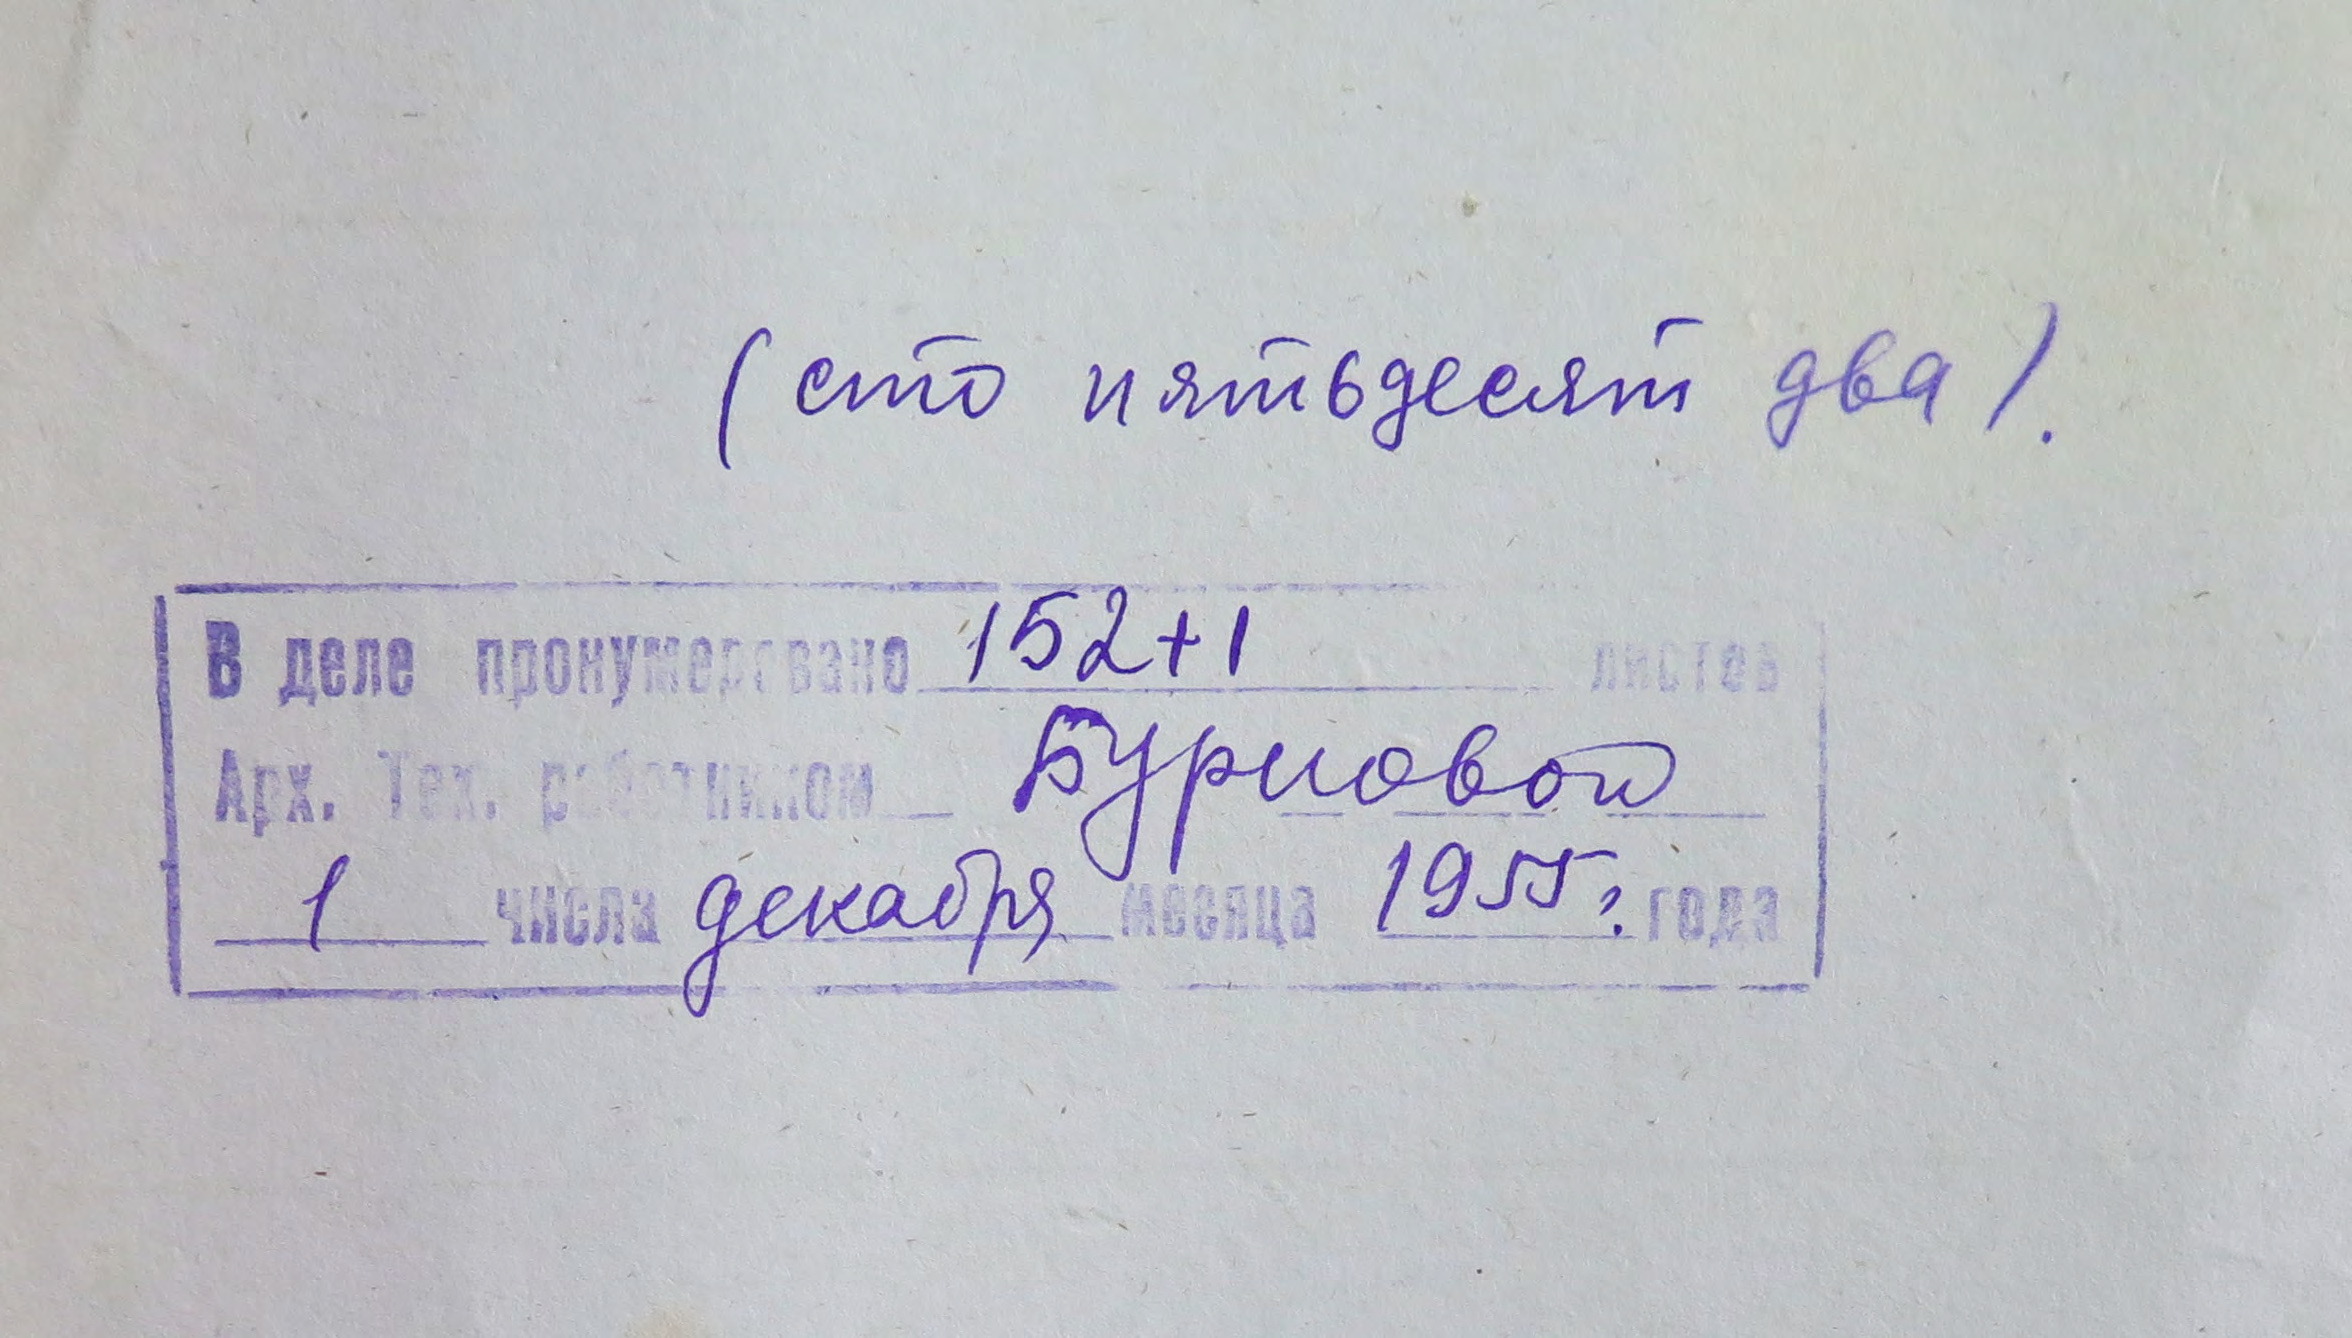 (сто пятьдесят два).
В деле пронумеровано 152+1 листов
Арх. Тех. работником Бурновой
1 числа декабря месяца 1955 г. года